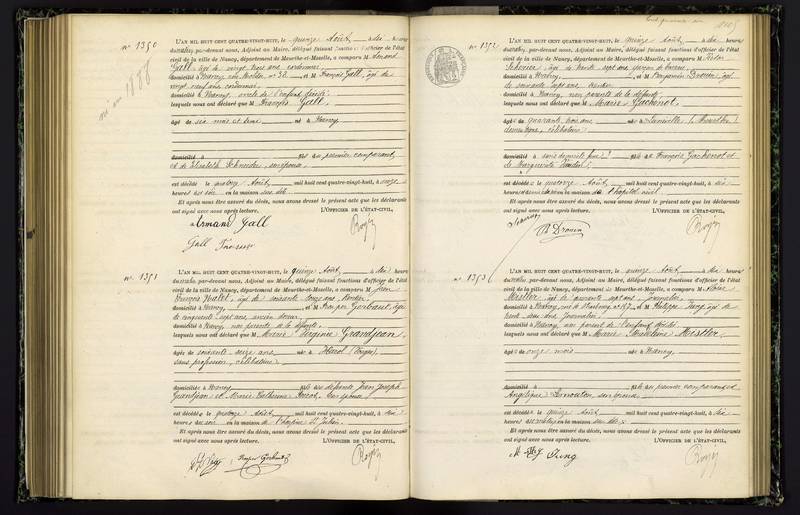 nº 1350
L'AN MIL HUIT CENT QUATRE-VINGT-HUIT, le quinze Août, à dix heures
du matin, par-devant nous, Adjoint au Maire, délégué faisant fonctions d'officier de l'état
civil de la ville de Nancy, département de Meurthe-et-Moselle, a comparu M. Armand
Gall, âgé de vingt trois ans, cordonnier
domicilié à Nancy, rue Molitor, nº 32 et M. François Gall, âgé de
vingt neuf ans, cordonnier
domicilié à Nancy, oncle de l'enfant décédé
lesquels nous ont déclaré que M. François Gall,
âgé de six mois et demi né à Nancy
domicilié à fils du premier comparant
et de Elisabeth Schneider, son épouse
est décédé le quatorze Août, mil huit cent quatre-vingt-huit, à onze
heures du soir en la maison sus dite
Et après nous être assuré du décès, nous avons dressé le présent acte que les déclarants
ont signé avec nous après lecture. L'OFFICIER DE L'ÉTAT-CIVIL,
Armand Gall
Gall François
nº 1351
L'AN MIL HUIT CENT QUATRE-VINGT-HUIT, le quinze Août, à dix heures
du matin, par-devant nous, Adjoint au Maire, délégué faisant fonctions d'officier de l'état
civil de la ville de Nancy, département de Meurthe-et-Moselle, a comparu M. Jean
François âgé de soixante ans, rentier
domicilié à Nancy, et M. François Gerbaut, âgé
de cinquante sept ans,
domicilié à Nancy, non parents de la défunte,
lesquels nous ont déclaré que Marie Virginie Grandjean,
âgée de soixante seize ans née à Harol (Vosges),
sans profession, célibataire
domiciliée à Nancy fille des défunts Jean Joseph
Grandjean et Marie Catherine son épouse
est décédée le quatorze Août, mil huit cent quatre-vingt-huit, à six
heures du soir en la maison de l'hospice St Julien.
Et après nous être assuré du décès, nous avons dressé le présent acte que les déclarants
ont signé avec nous après lecture. L'OFFICIER DE L'ÉTAT-CIVIL,
nº 1352
L'AN MIL HUIT CENT QUATRE-VINGT-HUIT, le quinze Août, à dix heures
du matin, par-devant nous, Adjoint au Maire, délégué faisant fonctions d'officier de l'état
civil de la ville de Nancy, département de Meurthe-et-Moselle, a comparu M. Victor
âgé de trente sept ans, garçon de bureau
domicilié à Nancy, et M. Benjamin Drouin, âgé
de soixante sept ans, rentier
domicilié à Nancy, non parents de la défunte
lesquels nous ont déclaré que Marie Gachenot,
âgée de quarante trois ans née à Luneville (Meurthe)
domestique, célibataire
domiciliée à sans domicile fixe fille de François Gachenot et
de Marguerite
est décédée le quatorze Août, mil huit cent quatre-vingt-huit, à six
heures en la maison de l'hôpital civil
Et après nous être assuré du décès, nous avons dressé le présent acte que les déclarants
ont signé avec nous après lecture. L'OFFICIER DE L'ÉTAT-CIVIL,
B Drouin
nº 1353
L'AN MIL HUIT CENT QUATRE-VINGT-HUIT, le quinze Août, à dix heures
du matin, par-devant nous, Adjoint au Maire, délégué faisant fonctions d'officier de l'état
civil de la ville de Nancy, département de Meurthe-et-Moselle, a comparu M.
Mistler âgé de quarante sept ans, journalier
domicilié à Nancy, rue de Strasbourg nº 157 et M. Philippe Jung, âgé de
trente deux ans, journalier
domicilié à Nancy, non parent de l'enfant décédé
lesquels nous ont déclaré que Marie Madeleine Mistler,
âgée de onze mois née à Nancy
domiciliée à fille du premier comparant et
Angélique son épouse
est décédée le quinze Août, mil huit cent quatre-vingt-huit, à six
heures du matin en la maison sus dite
Et après nous être assuré du décès, nous avons dressé le présent acte que les déclarants
ont signé avec nous après lecture. L'OFFICIER DE L'ÉTAT-CIVIL,
Jung